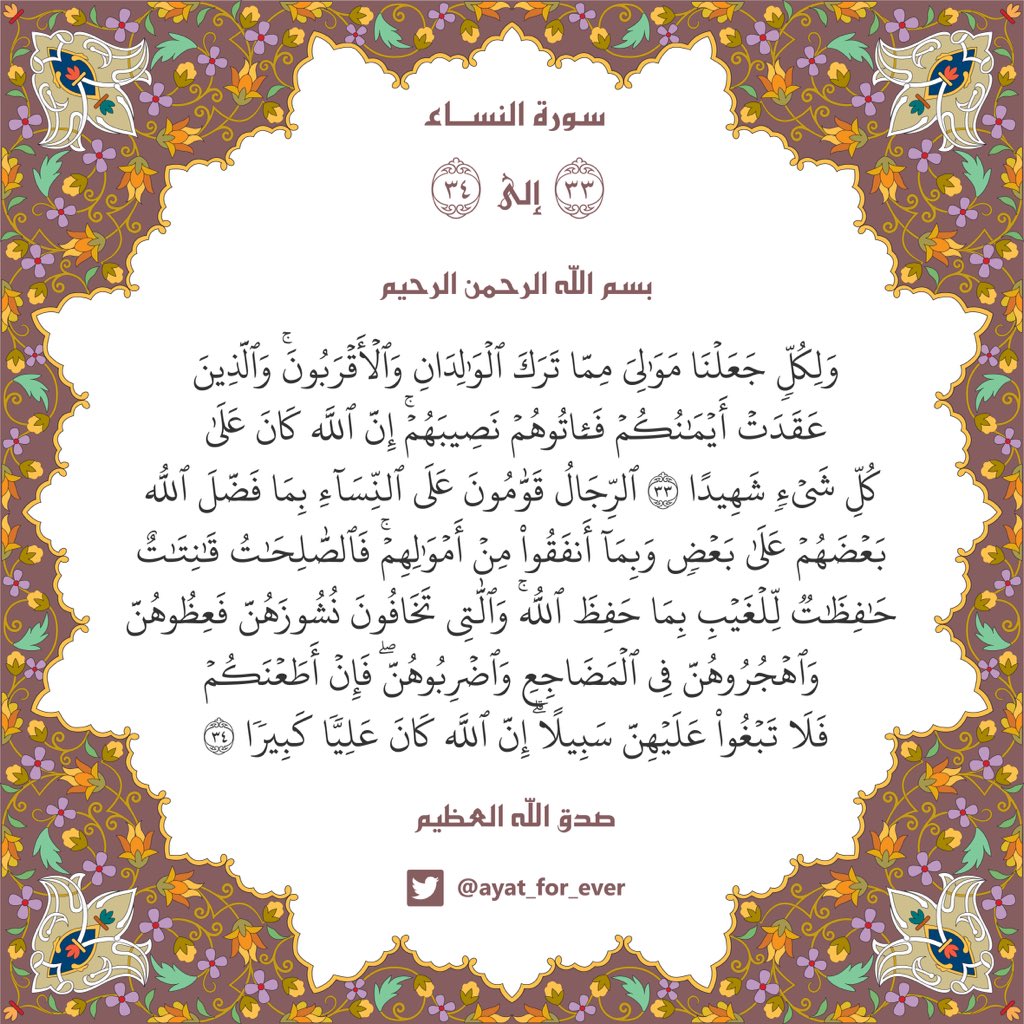 سورة النســاء
٣٣ إلىٰ ٣٤
بسم الله الرحمن الرحيم
وَلِكُلّٖ جَعَلۡنَا مَوَٰلِيَ مِمَّا تَرَكَ ٱلۡوَٰلِدَانِ وَٱلۡأَقۡرَبُونَۚ وَٱلَّذِينَ
عَقَدَتۡ أَيۡمَٰنُكُمۡ فَـَٔاتُوهُمۡ نَصِيبَهُمۡۚ إِنَّ ٱللَّهَ كَانَ عَلَىٰ
كُلِّ شَيۡءٖ شَهِيدًا ٣٣ ٱلرِّجَالُ قَوَّٰمُونَ عَلَى ٱلنِّسَآءِ بِمَا فَضَّلَ ٱللَّهُ
بَعۡضَهُمۡ عَلَىٰ بَعۡضٖ وَبِمَآ أَنفَقُواْ مِنۡ أَمۡوَٰلِهِمۡۚ فَٱلصَّٰلِحَٰتُ قَٰنِتَٰتٌ
حَٰفِظَٰتٞ لِّلۡغَيۡبِ بِمَا حَفِظَ ٱللَّهُۚ وَٱلَّٰتِي تَخَافُونَ نُشُوزَهُنَّ فَعِظُوهُنَّ
وَٱهۡجُرُوهُنَّ فِي ٱلۡمَضَاجِعِ وَٱضۡرِبُوهُنَّۖ فَإِنۡ أَطَعۡنَكُمۡ
فَلَا تَبۡغُواْ عَلَيۡهِنَّ سَبِيلًاۗ إِنَّ ٱللَّهَ كَانَ عَلِيّٗا كَبِيرٗا ٣٤
صدق الله العظيم
@ayat_for_ever